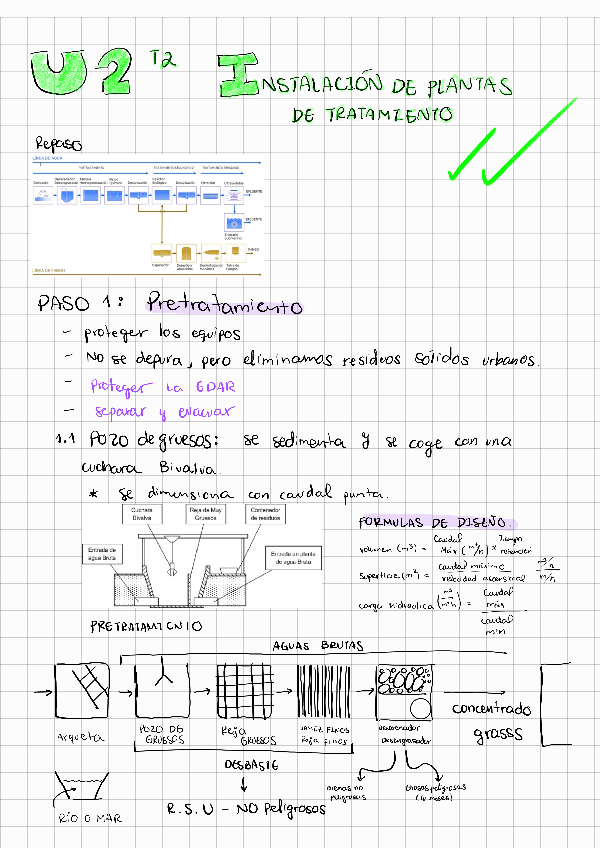 U2 T2 INSTALACIÓN DE PLANTAS
DE TRATAMIENTO
Repaso
LÍNEA DE AGUA
PRETRATAMIENTO TRATAMIENTO SECUNDARIO TRATAMIENTO TERCIARIO
Desbaste Decantación Reactor Biológico Decantación Filtración Ultravioleta
EFLUENTE
EFLUENTE
Emisario Submarino
Espesador Digestión Anaerobia Deshidratación Mecánica Tolva de Fangos
FANGO
LÍNEA DE FANGOS
PASO 1: Pretratamiento
- proteger los equipos
- No se depura, pero eliminamos residuos sólidos urbanos.
- Proteger la EDAR
- separar y evacuar
1.1 POZO de gruesos: se sedimenta y se coge con una
cuchara Bivalva.
* se dimensiona con caudal punta.
Cuchara Bivalva
Reja de Muy Gruesos
Contenedor de residuos
Entrada de agua Bruta
Entrada en planta de agua Bruta
FORMULAS DE DISEÑO.
volumen (m3) = Caudal Máx (m3/h) x Tiempo retención
Superficie (m2) = caudal máximo / velocidad ascensional m3/h / m/h
carga hidraulica (m3/m2h) = Caudal máx / caudal min
PRETRATAMIENTO
AGUAS BRUTAS
Arqueta
POZO DE GRUESOS
Reja GRUESOS
TAMIZ FINOS Reja FINOS
Desarenador Desengrasador
concentrado grasss
DESBASTE
arenas no peligrosas
Grasas peligrosas (6 meses)
RÍO O MAR
R.S.U - NO Peligrosos